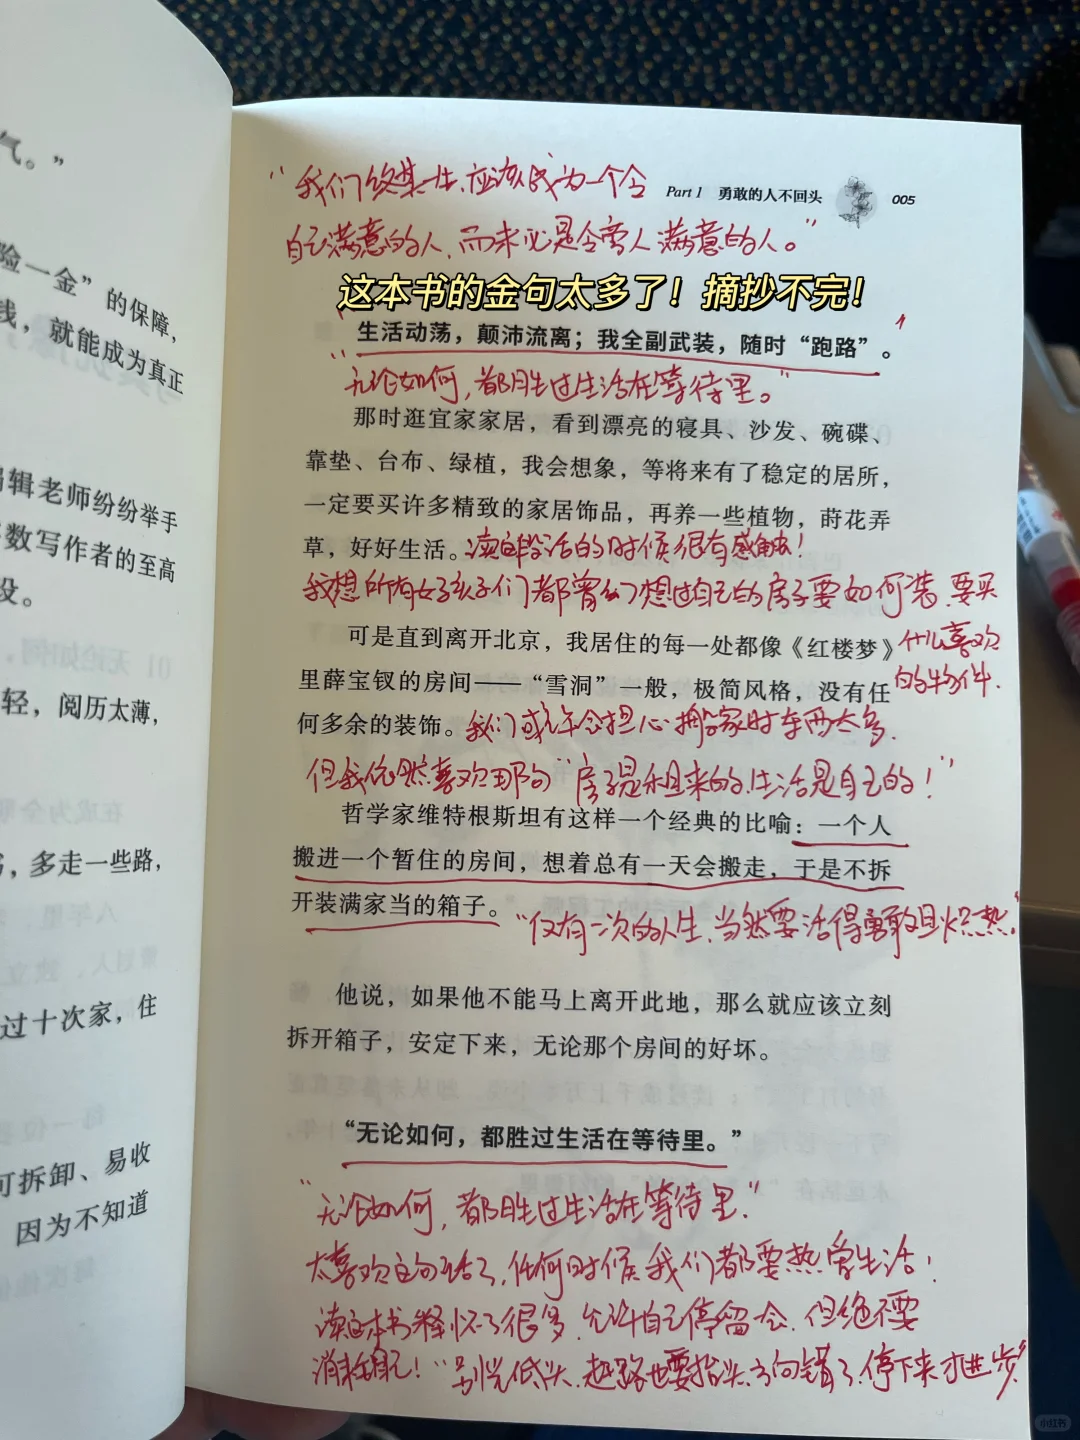 气。”
险一金”的保障，
钱，就能成为真正
编辑老师纷纷举手
数写作者的至高
没。
轻，阅历太薄，
书，多走一些路，
过十次家，住
可拆卸、易收
因为不知道
“我们终其一生，应该成为一个令
Part 1 勇敢的人不回头 005
自己满意的人，而未必是令旁人满意的人。”
这本书的金句太多了！摘抄不完！
生活动荡，颠沛流离；我全副武装，随时“跑路”。
“无论如何，都胜过生活在等待里。”
那时逛宜家家居，看到漂亮的寝具、沙发、碗碟、
靠垫、台布、绿植，我会想象，等将来有了稳定的居所，
一定要买许多精致的家居饰品，再养一些植物，莳花弄
草，好好生活。读这段话的时候很有感触！
我想所有女孩子们都曾幻想过自己的房子要如何装，要买
可是直到离开北京，我居住的每一处都像《红楼梦》什么喜欢
里薛宝钗的房间——“雪洞”一般，极简风格，没有任的物件.
何多余的装饰。我们或许会担心搬家时东西太多.
但我依然喜欢那句“房子是租来的，生活是自己的！”
哲学家维特根斯坦有这样一个经典的比喻：一个人
搬进一个暂住的房间，想着总有一天会搬走，于是不拆
开装满家当的箱子。“仅有一次的人生，当然要活得勇敢且炽热。”
他说，如果他不能马上离开此地，那么就应该立刻
拆开箱子，安定下来，无论那个房间的好坏。
“无论如何，都胜过生活在等待里。”
“无论如何，都胜过生活在等待里.”
太喜欢这句话了，任何时候我们都要热爱生活！
读这本书释怀了很多，允许自己停留会，但绝不要
消耗自己！“别慌低头，赶路也要抬头，方向错了，停下来才进步”
小红书